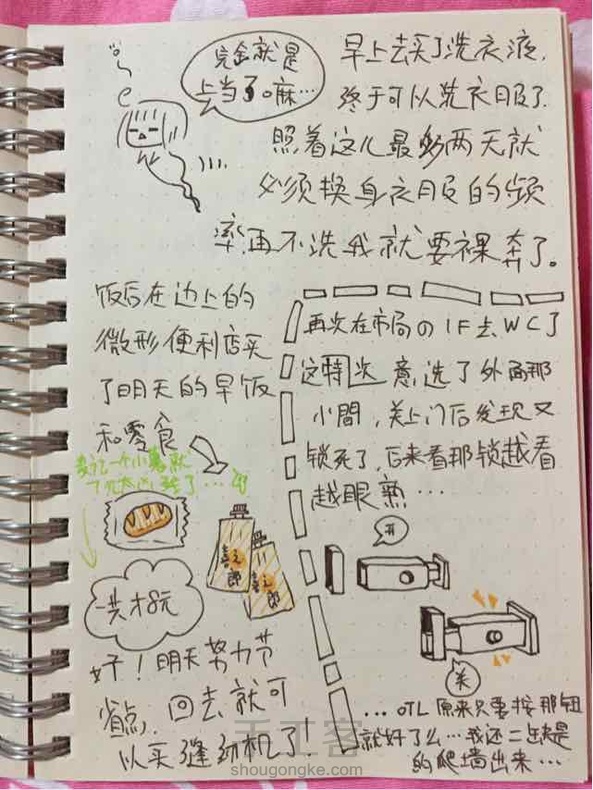 完全就是
上当了嘛…
早上去买了洗衣液,
终于可以洗衣服了.
照着这儿最多两天就
必须换身衣服的频
率,再不洗我就要裸奔了。
饭后在边上的
微形便利店买
了明天的早饭
和零食
喜之郎
喜之郎
一共才8元
好!明天努力节
省点,回去就可
以买缝纫机了!
再次在市局の1F去WC了
这次特意选了外面那
小間,关上门后发现又
锁死了,后来看那锁越看
越眼熟…
开
关
...OTL 原来只要按那钮
就好了么…我还二缺是
的爬墙出来…
手工客
shougongke.com